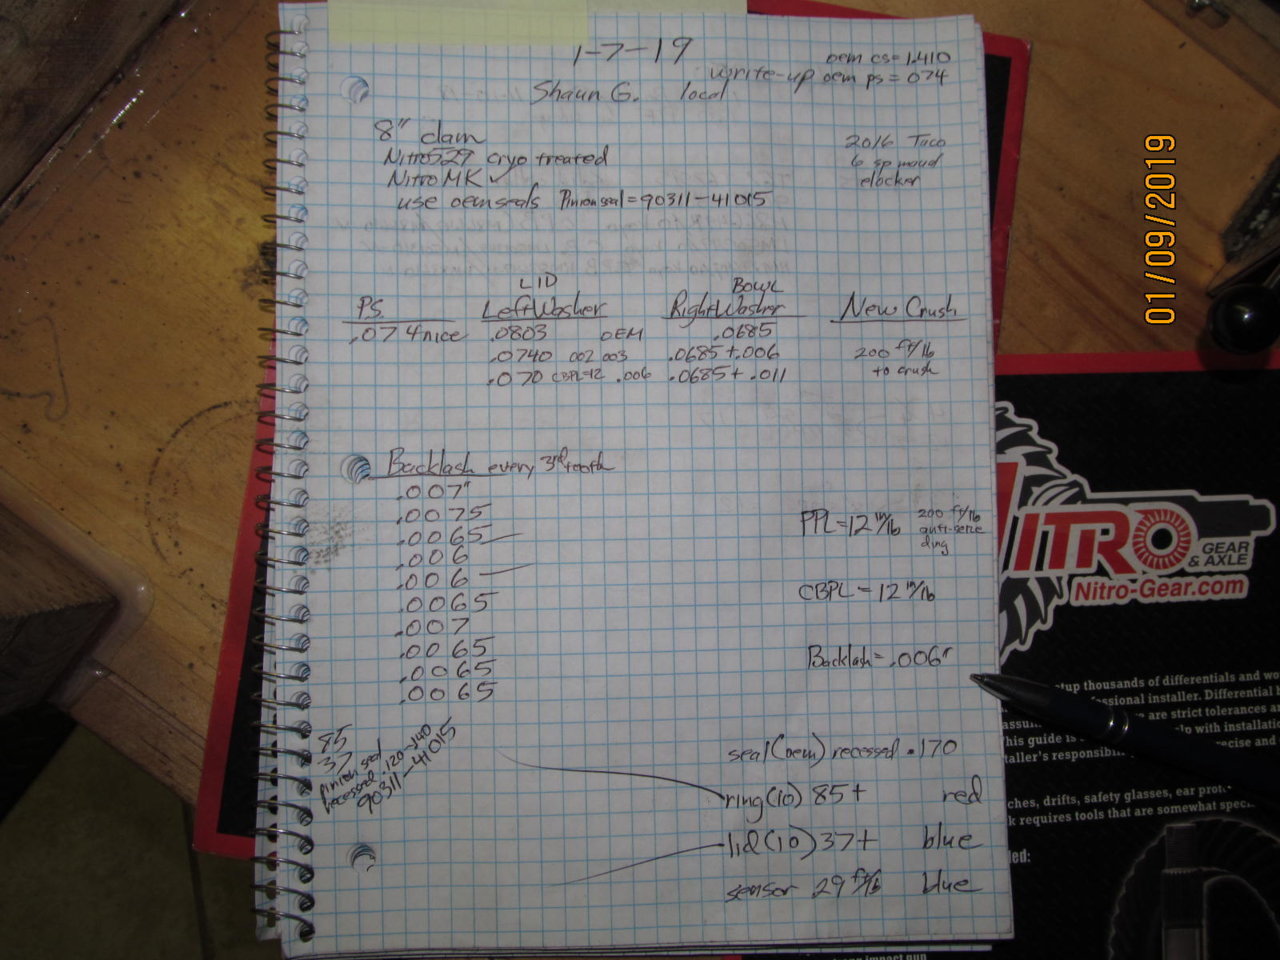 1-7-19
oem cs = 1.410
write-up oem ps = 074
Shaun G. local
8" clam
Nitro 529 cryo treated
Nitro MK
use oem seals Pinion seal = 90311-41015
2016 Taco
6 sp
elocker
P.S.
.074 nice
LID
Left Washer
.0803 OEM
.0740 002 003
.070 CBPL=12 .006
BOWL
Right Washer
.0685
.0685 + .006
.0685 + .011
New Crush
200 ft/lb
to crush
Backlash every 3rd tooth
.007"
.0075
.0065
.006
.006
.0065
.007
.0065
.0065
.0065
PPL = 12 in/lb
200 ft/lb
anti-seize
CBPL = 12 in/lb
Backlash = .006"
85
37
pinion seal
recessed .120-.140
90311-41015
seal (oem) recessed .170
ring (10) 85+ red
lid (10) 37+ blue
sensor 29 ft/lb blue
01/09/2019
NITRO
GEAR
& AXLE
Nitro-Gear.com
tup thousands of differentials and
professional installer. Differential
are strict tolerances
his guide is
lp with installation
taller's responsibil
recise and
ches, drifts, safety glasses, ear
k requires tools that are somewhat
led:
impact gun